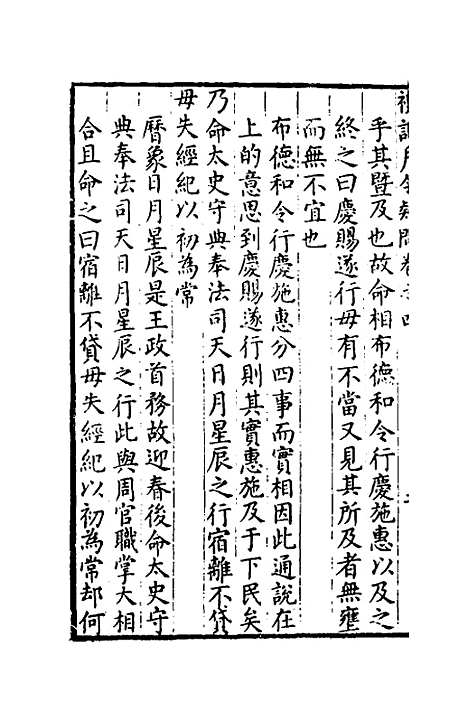 乎其暨及也故命相布德和令行慶施惠以及之
終之曰慶賜遂行毋有不當又見其所及者無壅
而無不宜也
布德和令行慶施惠分四事而實相因此通說在
上的意思到慶賜遂行則其實惠施及于下民矣
乃命太史守典奉法司天日月星辰之行宿離不貸
毋失經紀以初為常
曆象日月星辰是王政首務故迎春後命太史守
典奉法司天日月星辰之行此與周官職掌大相
合且命之曰宿離不貸毋失經紀以初為常却何